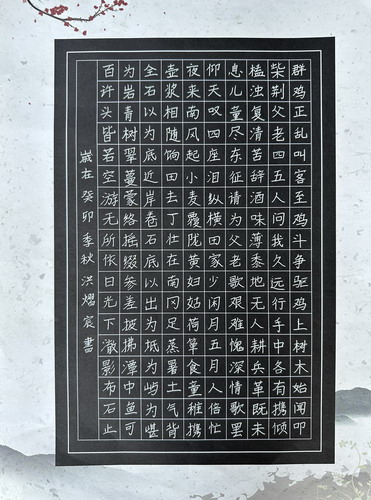 群鸡正乱叫客至鸡斗争驱鸡上树木始闻叩
柴荆父老四五人问我久远行手中各有携倾
榼浊复清苦辞酒味薄黍地无人耕兵革既未
息儿童尽东征请为父老歌艰难愧深情歌罢
仰天叹四座泪纵横田家少闲月五月人倍忙
夜来南风起小麦覆陇黄妇姑荷箪食童稚携
壶浆相随饷田去丁壮在南冈足蒸暑土气背
全石以为底近岸卷石底以出为坻为屿为嵁
为岩青树翠蔓蒙络摇缀参差披拂潭中鱼可
百许头皆若空游无所依日光下澈影布石上
歲在癸卯季秋洪熠宸書